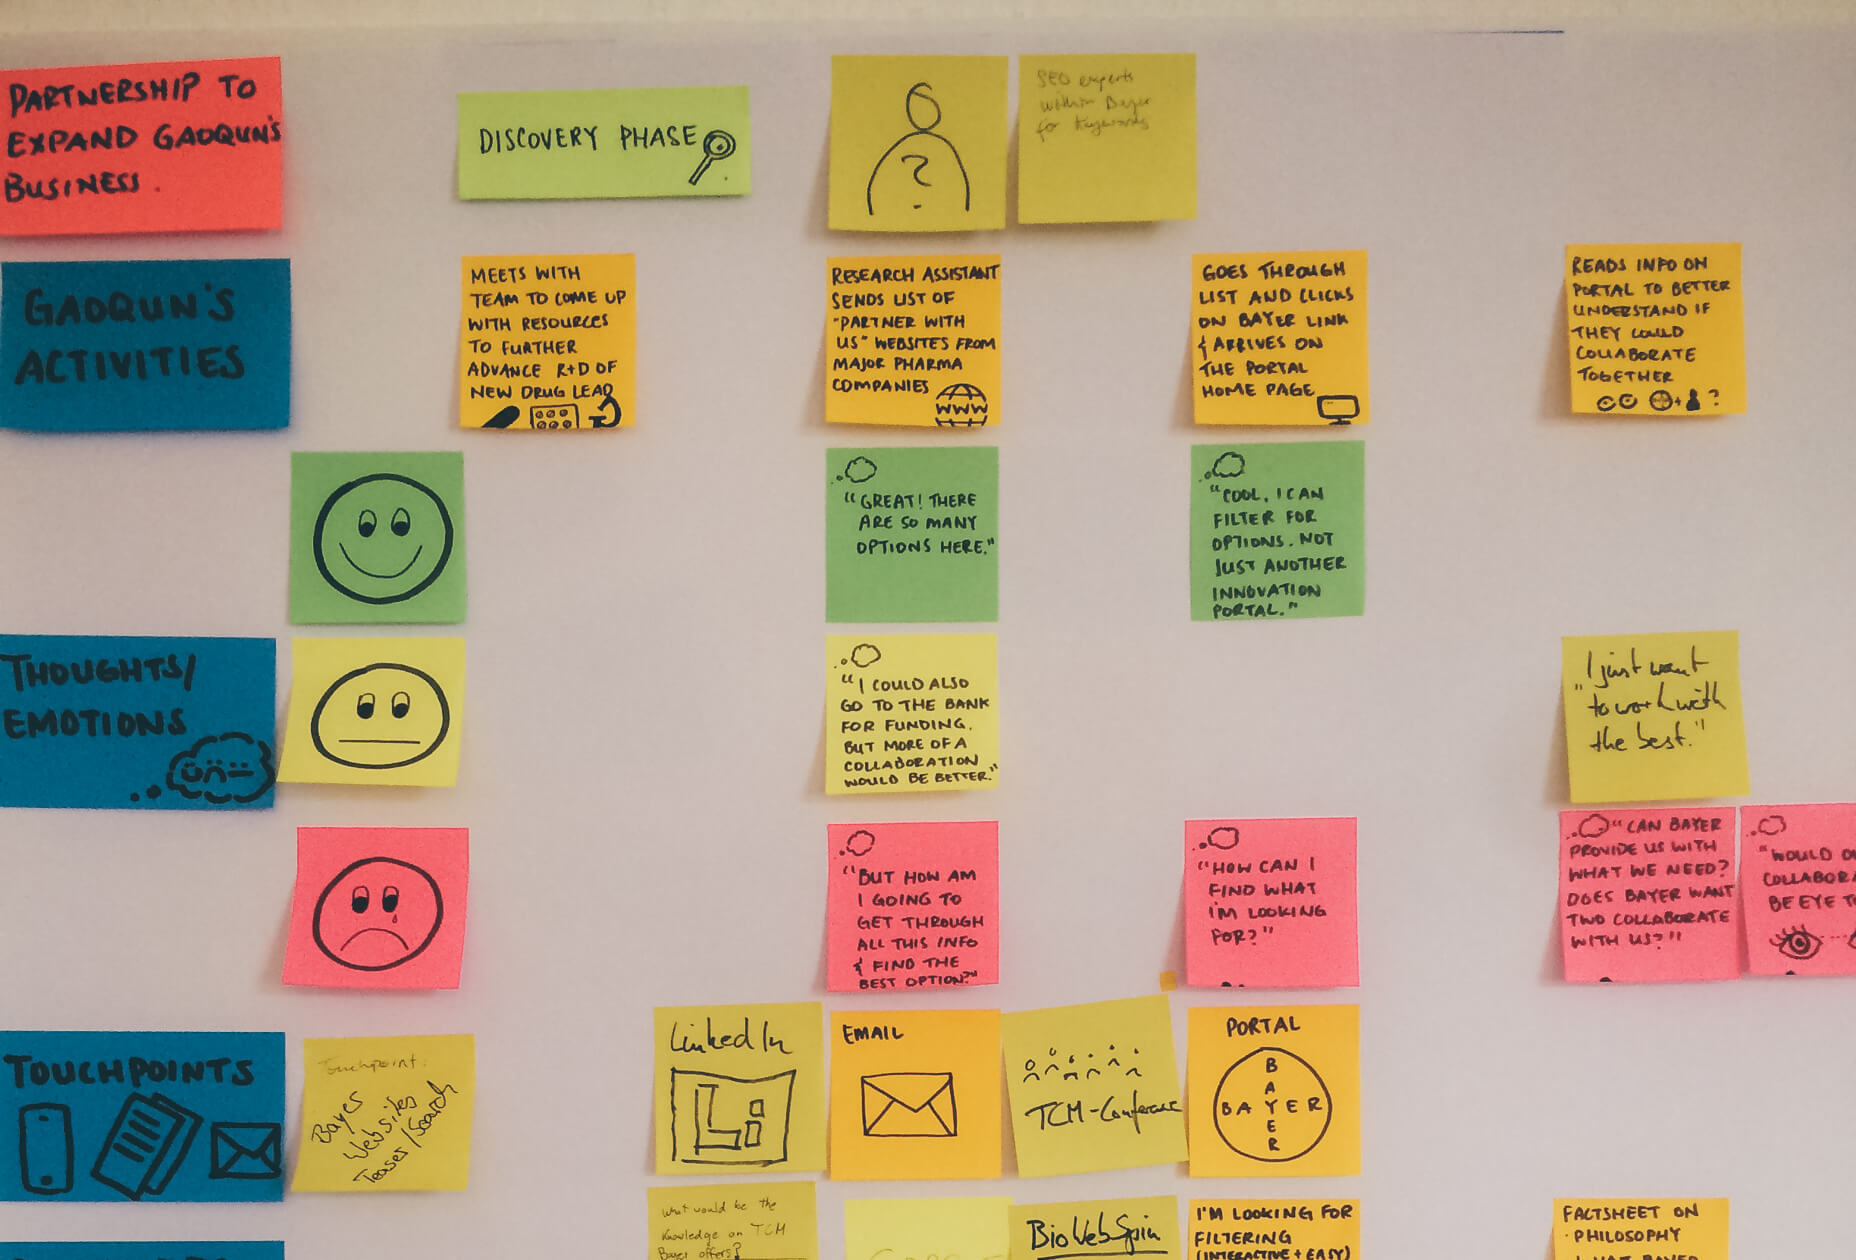 PARTNERSHIP TO
EXPAND GAOQUN'S
BUSINESS.
DISCOVERY PHASE
?
SEO experts
within Bayer
for Keywords
GAOQUN'S
ACTIVITIES
MEETS WITH
TEAM TO COME UP
WITH RESOURCES
TO FURTHER
ADVANCE R+D OF
NEW DRUG LEAD
RESEARCH ASSISTANT
SENDS LIST OF
"PARTNER WITH
US" WEBSITES FROM
MAJOR PHARMA
COMPANIES
WWW
GOES THROUGH
LIST AND CLICKS
ON BAYER LINK
& ARRIVES ON
THE PORTAL
HOME PAGE
READS INFO ON
PORTAL TO BETTER
UNDERSTAND IF
THEY COULD
COLLABORATE
TOGETHER
+ ?
"GREAT! THERE
ARE SO MANY
OPTIONS HERE."
"COOL, I CAN
FILTER FOR
OPTIONS. NOT
JUST ANOTHER
INNOVATION
PORTAL."
THOUGHTS/
EMOTIONS
"I COULD ALSO
GO TO THE BANK
FOR FUNDING.
BUT MORE OF A
COLLABORATION
WOULD BE BETTER."
I just want
"to work with
the best."
"BUT HOW AM
I GOING TO
GET THROUGH
ALL THIS INFO
& FIND THE
BEST OPTION?"
"HOW CAN I
FIND WHAT
I'M LOOKING
FOR?"
"CAN BAYER
PROVIDE US WITH
WHAT WE NEED?
DOES BAYER WANT
TWO COLLABORATE
WITH US?"
"WOULD
COLLABOR
BE EYE T
TOUCHPOINTS
Touchpoint:
Bayer
Websites
Teaser/Search
LinkedIn
Li
EMAIL
TCM-Conference
PORTAL
BAYER
BAYER
What would be the
Knowledge on TCM
Bayer offers?
BioWebSpin
I'M LOOKING FOR
FILTERING
(INTERACTIVE + EASY)
FACTSHEET ON
· PHILOSOPHY